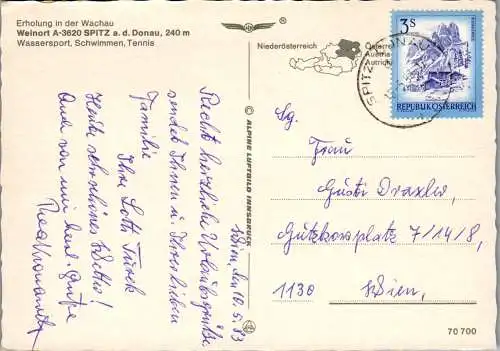 Erholung in der Wachau
Weinort A-3620 SPITZ a. d. Donau, 240 m
Wassersport, Schwimmen, Tennis
®
Niederösterreich
Österreich
Austria
Autriche
3 S
REPUBLIK ÖSTERREICH
SPITZ DONAU
© ALPINE LUFTBILD INNSBRUCK
Wien, den 10. 5. 83
Recht herzliche Urlaubsgrüße
sendet Ihnen u. Ihrer lieben
Familie
Ihre Lotti Turek
Heute sehr schönes Wetter!
Auch von mir herzl. Grüße
Sg.
Frau
Gusti Draxler,
Gutzkowplatz 7/14/8,
1130 Wien,
70 700